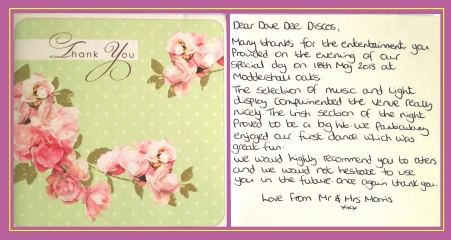 Thank You
Dear Dave Dee Discos,
Many thanks for the entertainment you
Provided on the evening of our
special day on 18th May 2013 at
Moddershall oaks.
The selection of music and light
display complimented the venue really
nicely. The Irish section of the night
Proved to be a big hit. We Particularly
enjoyed our first dance which was
great fun.
We would highly recommend you to others
and we would not hesitate to use
you in the future. once again thank you.
Love From Mr & Mrs Morris
xxx